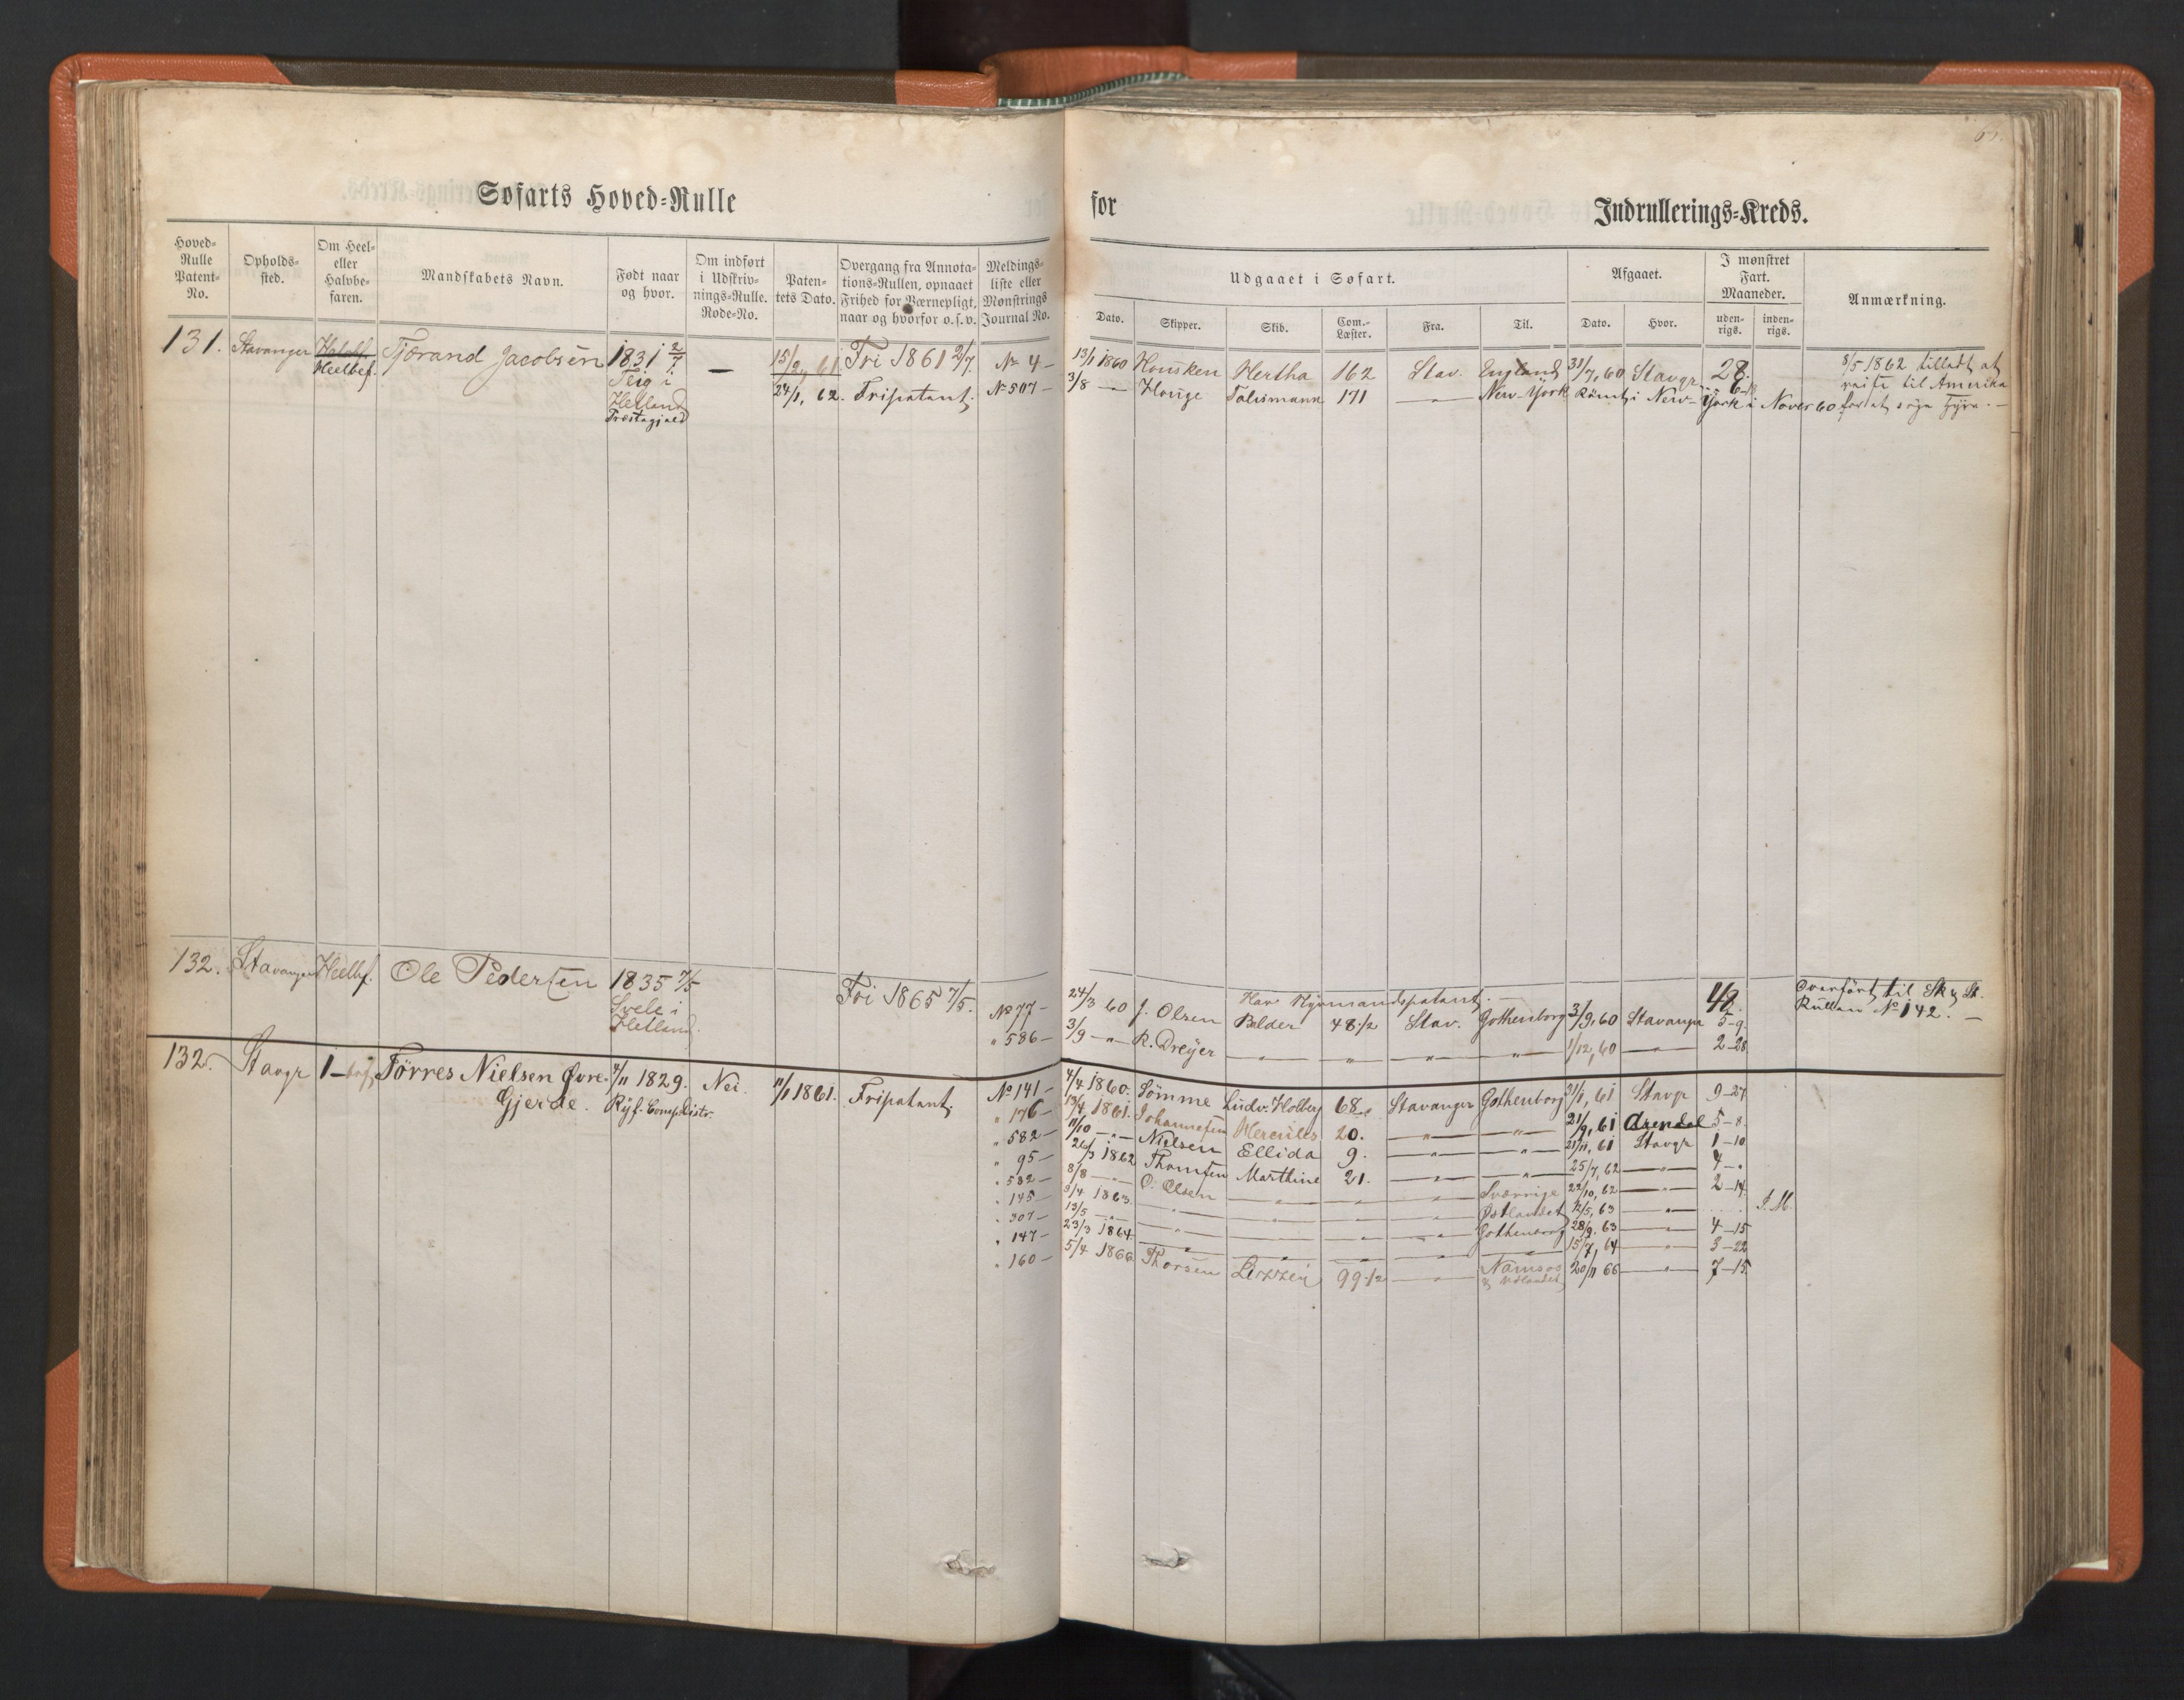 Søfarts Hoved-Rulle for Indrullerings-Kreds.
Hoved-Rulle Patent-No. Opholds-sted. Om Heel- eller Halvbe-faren. Mandskabets Navn. Født naar og hvor. Om indført i Udskriv-nings-Rulle. Rode-No. Paten-tets Dato. Overgang fra Annota-tions-Rullen, opnaaet Frihed for Værnepligt, naar og hvorfor o.s.v. Meldings-liste eller Mønstrings Journal No.
Udgaaet i Søfart. Afgaaet. I mønstret Fart. Maaneder. Anmærkning.
Dato. Skipper. Skib. Com.-Læster. Fra. Til. Dato. Hvor. uden-rigs. inden-rigs.
131. Stavanger Halvbf. Tjærand Jacobsen 1831 2/7 — 15/2, 61 Fri 1861 2/7. No 4 — 13/1 1860 Housken Hertha 162 Stav. England 31/7, 60 Stavgr. 28. 8/5 1862 tilladt at
Heelbef. Teig i 24/1, 62. Fripatent. No 507 — 3/8 — Houge Talismann 171 — New-York Rømt i New-York i Nover 60 reise til Amerika
Hetland for at søge Hyre. —
Præstegjæld
132. Stavanger Heelbf. Ole Pedersen 1835 7/5 Fri 1865 7/5. Har Styrmandspatent. — 48. Overført til Sk & St.
Svele i No 77 — 24/3 60 J. Olsen Balder 48 1/2 Stav. Gothenborg 3/9, 60 Stavanger 5-9. Rullen No 142. —
Hetland. " 586 — 3/9 — " — R. Dreyer — " — — " — — " — — " — 1/12, 60 — 2-28
132. Stavgr 1 — Tørres Nielsen Øvre- 4/11 1829. Nei. 11/1 1861. Fripatent. No 141 — 4/4 1860. Sømme Ludv. Holberg 68 Stavanger Gothenborg 31/1, 61 Stavgr 9-27
Gjerde. Ryf. Comp. Distr. " 176 — 13/4 1861. Johannesen Hercules 20. — " — — " — 21/9, 61 Arendal 5-8.
" 582 — 11/10 — " — Nielsen Ellida 9. — " — — " — 21/11, 61 Stavgr 1-10
" 95 — 26/3 1862 Thomsen Marthine 21. — " — — " — 25/7, 62 — " — 4-"
" 532 — 8/8 — " — O. Olsen — " — — " — — " — Sverrige 22/10, 62 — " — 2-14.
" 145 — 9/4 1863. — " — — " — — " — Østlandet 12/5, 63 — " — J. M.
" 307 — 13/5 — " — — " — — " — — " — Gothenborg 28/9. 63 — " — 4-15
" 147 — 23/3 1864. — " — — " — — " — — " — 15/7, 64 — " — 3-22
" 160 — 5/4 1866. Thorsen Lizzie 99 1/2 — " — Namsos 20/11 66 — " — 7-15.